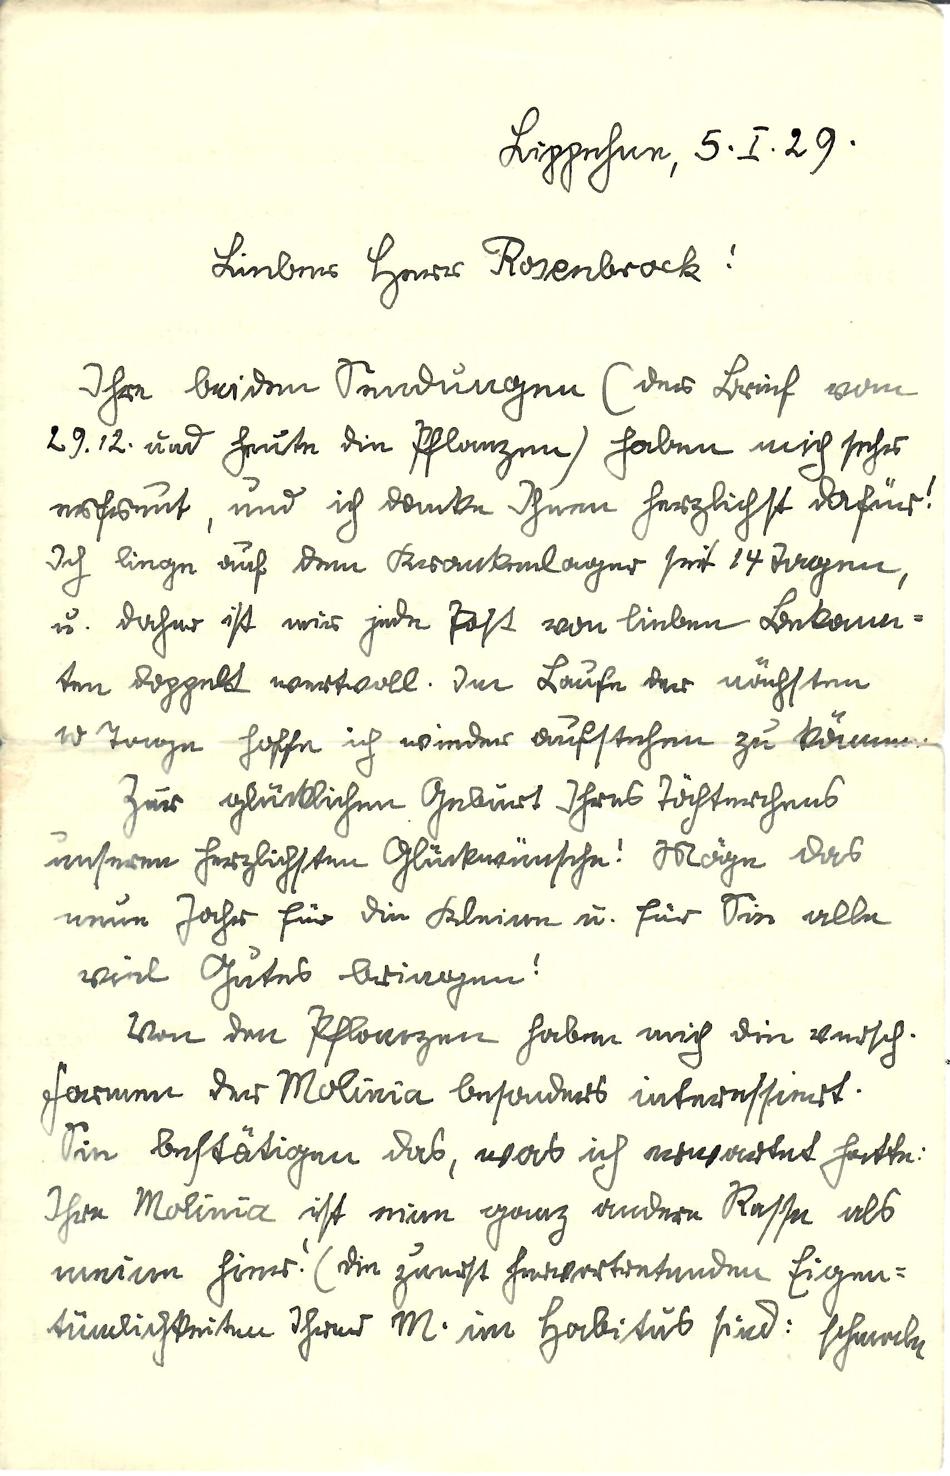 Lippehne, 5. I. 29.
Lieber Herr Rosenbrock!
Ihre beiden Sendungen (der Brief vom
29.12. und heute die Pflanzen) haben mich sehr
erfreut, und ich danke Ihnen herzlichst dafür!
Ich liege auf dem Krankenlager seit 14 Tagen,
u. daher ist mir jede Post von lieben Bekann-
ten doppelt wertvoll. Im Laufe der nächsten
10 Tage hoffe ich wieder aufstehen zu können.
Zur glücklichen Geburt Ihres Töchterchens
unseren herzlichsten Glückwünsche! Möge das
neue Jahr für die Kleine u. für Sie alle
viel Gutes bringen!
Von den Pflanzen haben mich die versch.
Formen der Molinia besonders interessiert.
Sie bestätigen das, was ich erwartet hatte:
Ihre Molinia ist eine ganz andere Rasse als
meine hier! (die zuerst hervortretenden Eigen-
tümlichkeiten Ihrer M. im Habitus sind: schmale